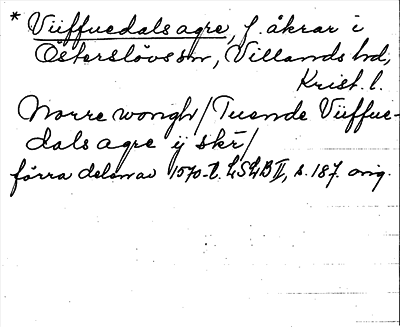 * Viiffuedals agre, f. åkrar i
Österslövs sn, Villands hd,
Krist. l.
Norre wongh / Tuende Viiffue-
dals agre ij skr /
förra delen av 1570-t. LSLB II, s. 187. orig.